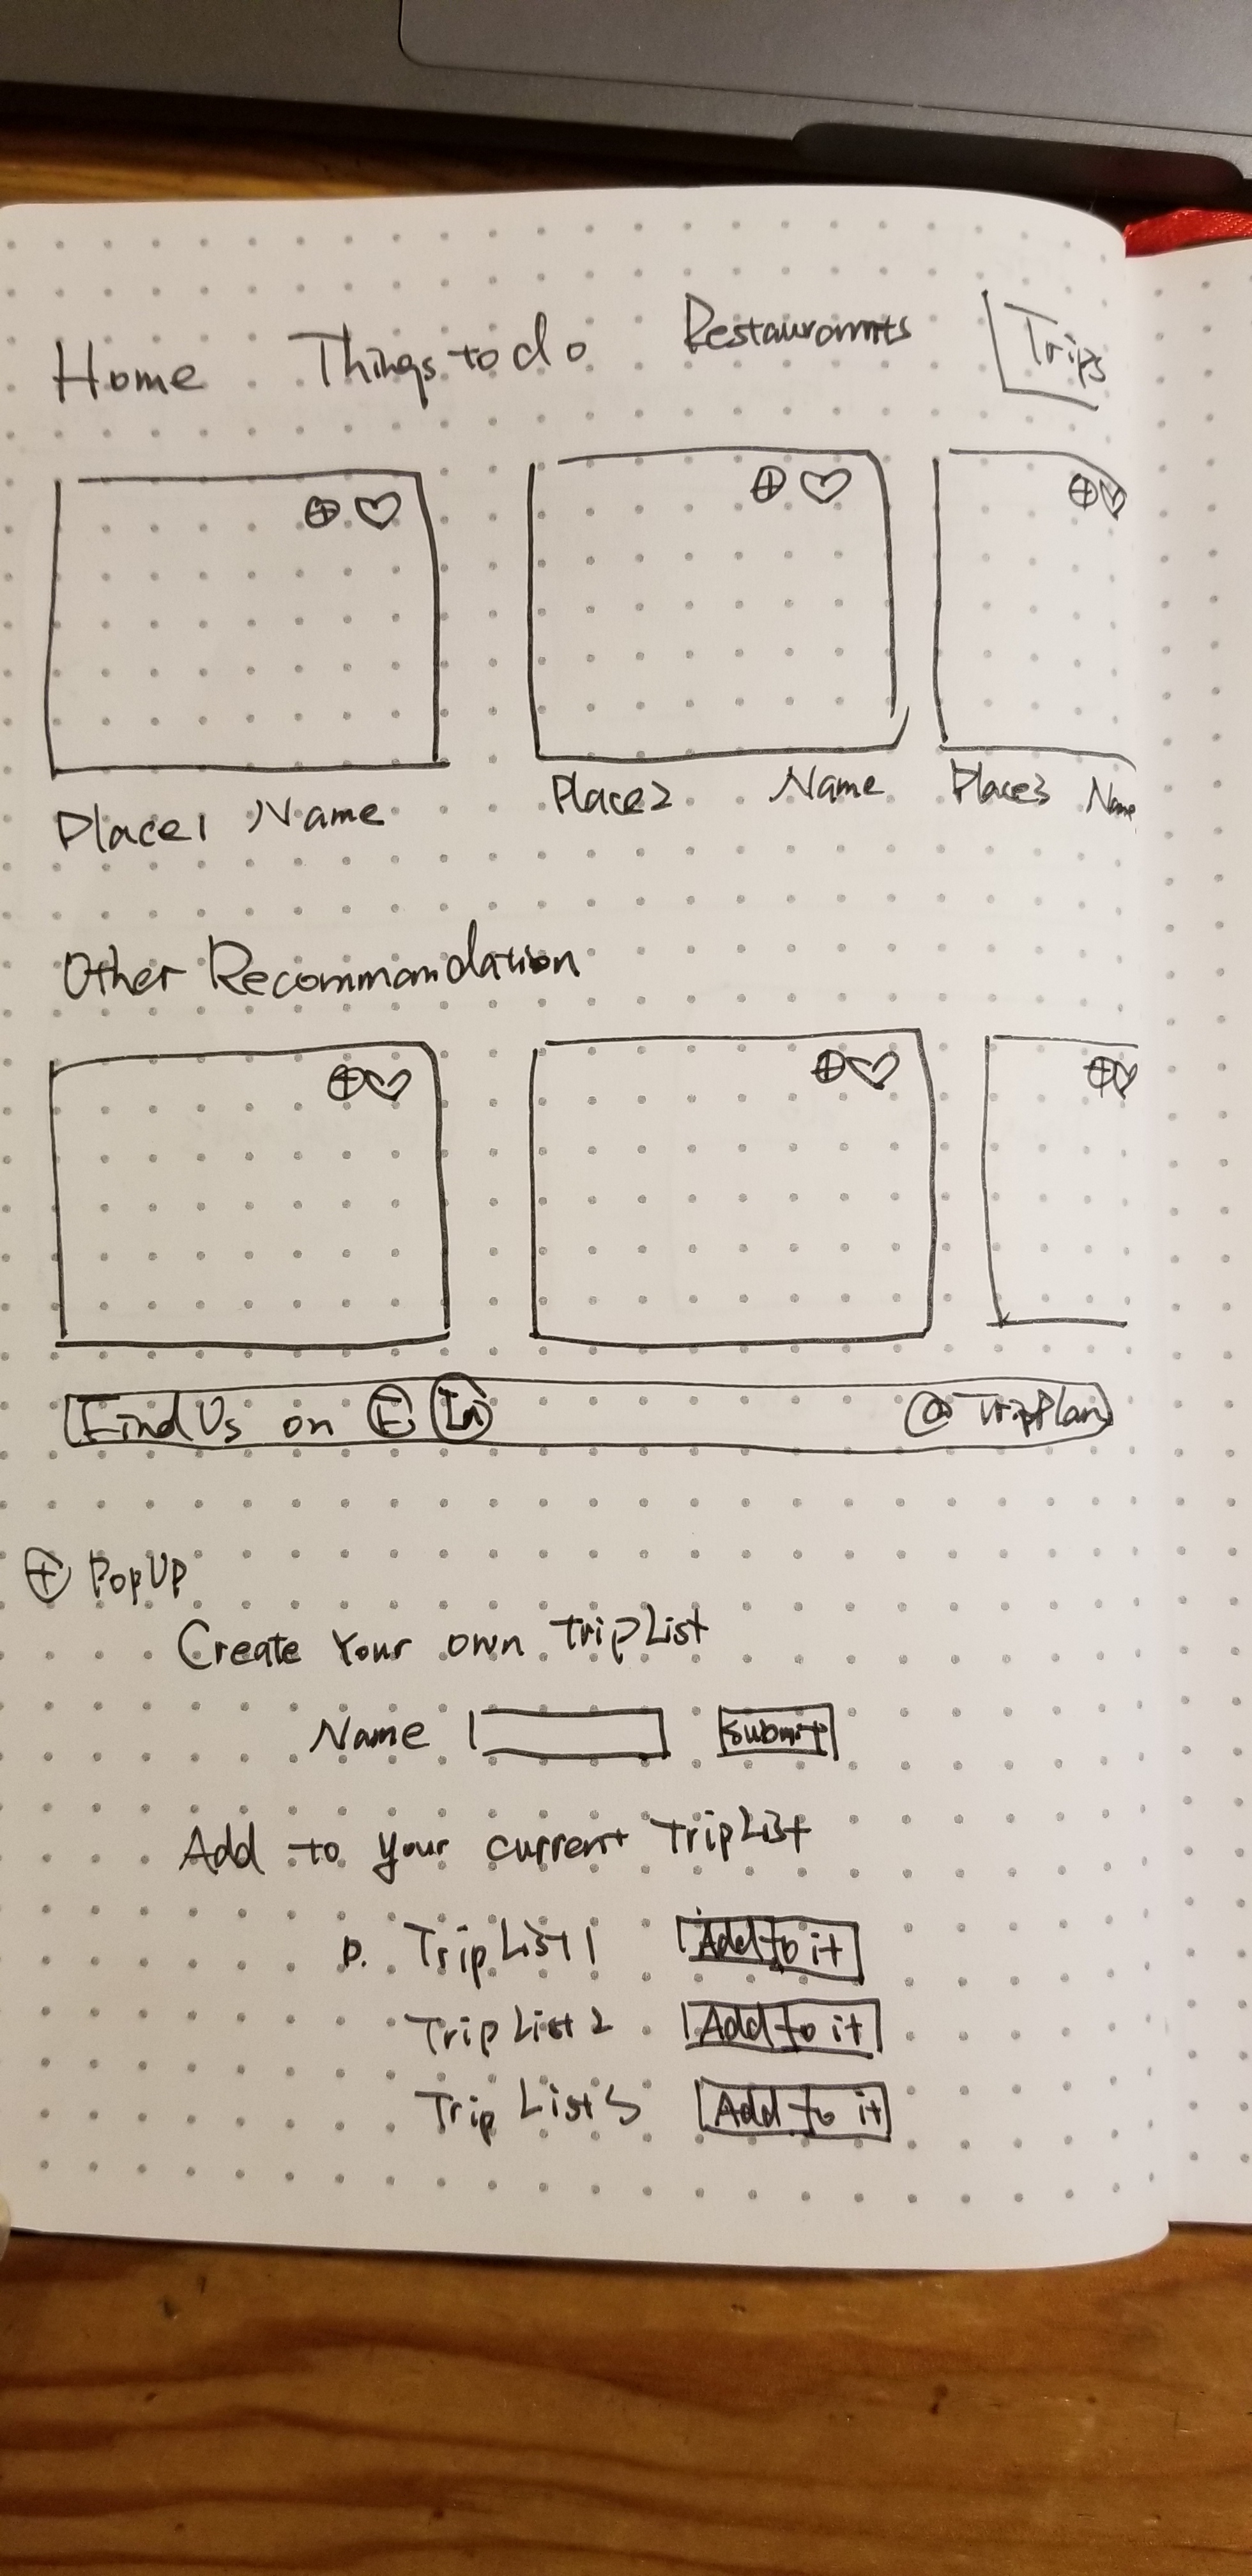 Home Things to do Restauromts Trips
Place1 Name Place2 Name Place3 Name
Other Recommandation
Find Us on F In @ TripPlan
PopUp
Create Your own Trip List
Name Submit
Add to your current Trip List
Trip List 1 Add to it
Trip List 2 Add to it
Trip List 3 Add to it